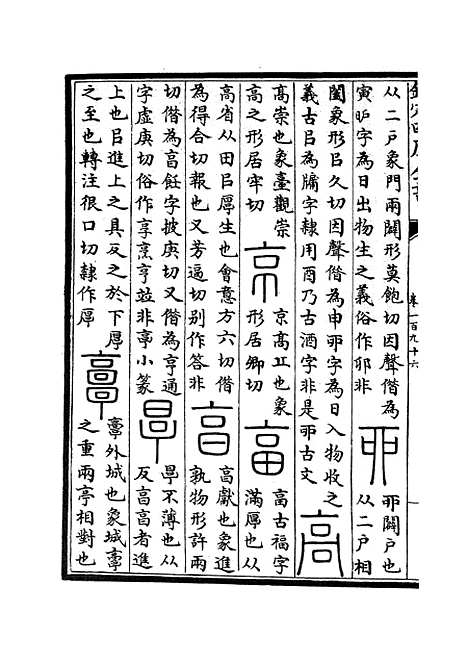 欽定四庫全書
卷一百九十六
从二戶象門兩闢形莫飽切因聲借為
寅戼字為日出物生之義俗作卯非
丣
丣闢戶也
从二戶相
闔象形㠯久切因聲借為申丣字為日入物收之
義古㠯為牖字隸用酉乃古酒字非是丣古文
高
高崇也象臺觀崇
高之形居牢切
京
京高丠也象
形居卿切
畗
畗古福字
滿厚也从
高省从田㠯厚生也會意方六切借
為得合切報也又芳逼切别作答非
亯
亯獻也象進
孰物形許兩
切借為亯飪字披庚切又借為亨通
字虛庚切俗作享烹亨竝非亭小篆
㫗
㫗不薄也从
反亯亯者進
上也㠯進上之具反之於下厚
之至也轉注很口切隸作厚
𩫏
𩫏外城也象城𩫏
之重兩亭相對也